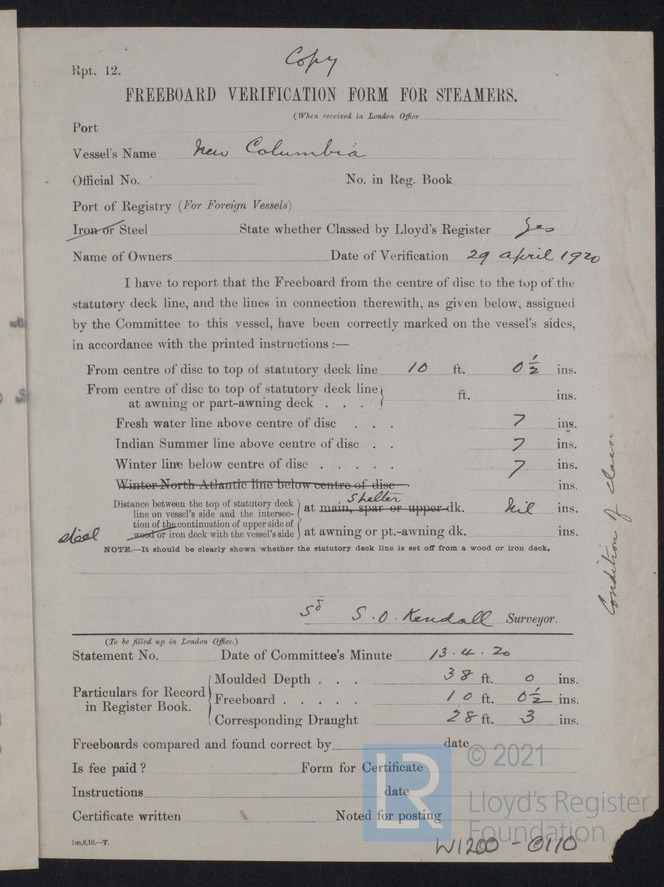 Copy
Rpt. 12.
FREEBOARD VERIFICATION FORM FOR STEAMERS.
(When received in London Office
Port
Vessel's Name New Columbia
Official No. No. in Reg. Book
Port of Registry (For Foreign Vessels)
Iron or Steel State whether Classed by Lloyd's Register Yes
Name of Owners Date of Verification 29 April 1920
I have to report that the Freeboard from the centre of disc to the top of the
statutory deck line, and the lines in connection therewith, as given below, assigned
by the Committee to this vessel, have been correctly marked on the vessel's sides,
in accordance with the printed instructions :—
From centre of disc to top of statutory deck line 10 ft. 0½ ins.
From centre of disc to top of statutory deck line
at awning or part-awning deck . . . ft. ins.
Fresh water line above centre of disc . . . 7 ins.
Indian Summer line above centre of disc . . 7 ins.
Winter line below centre of disc . . . . . 7 ins.
Winter North Atlantic line below centre of disc ins.
Distance between the top of statutory deck
line on vessel's side and the intersec-
tion of the continuation of upper side of
wood or iron deck with the vessel's side
steel
Shelter
at main, spar or upper dk. Nil ins.
at awning or pt.-awning dk. ins.
NOTE.—It should be clearly shown whether the statutory deck line is set off from a wood or iron deck.
Condition of class
Sd S. O. Kendall Surveyor.
(To be filled up in London Office.)
Statement No. Date of Committee's Minute 13.4.20
Particulars for Record
in Register Book.
Moulded Depth . . . 38 ft. 0 ins.
Freeboard . . . . . 10 ft. 0½ ins.
Corresponding Draught 28 ft. 3 ins.
Freeboards compared and found correct by date
Is fee paid ? Form for Certificate
Instructions date
Certificate written Noted for posting
1m,8,19.—T.
LR
© 2021
Lloyd's Register
Foundation
W1200 - 0110